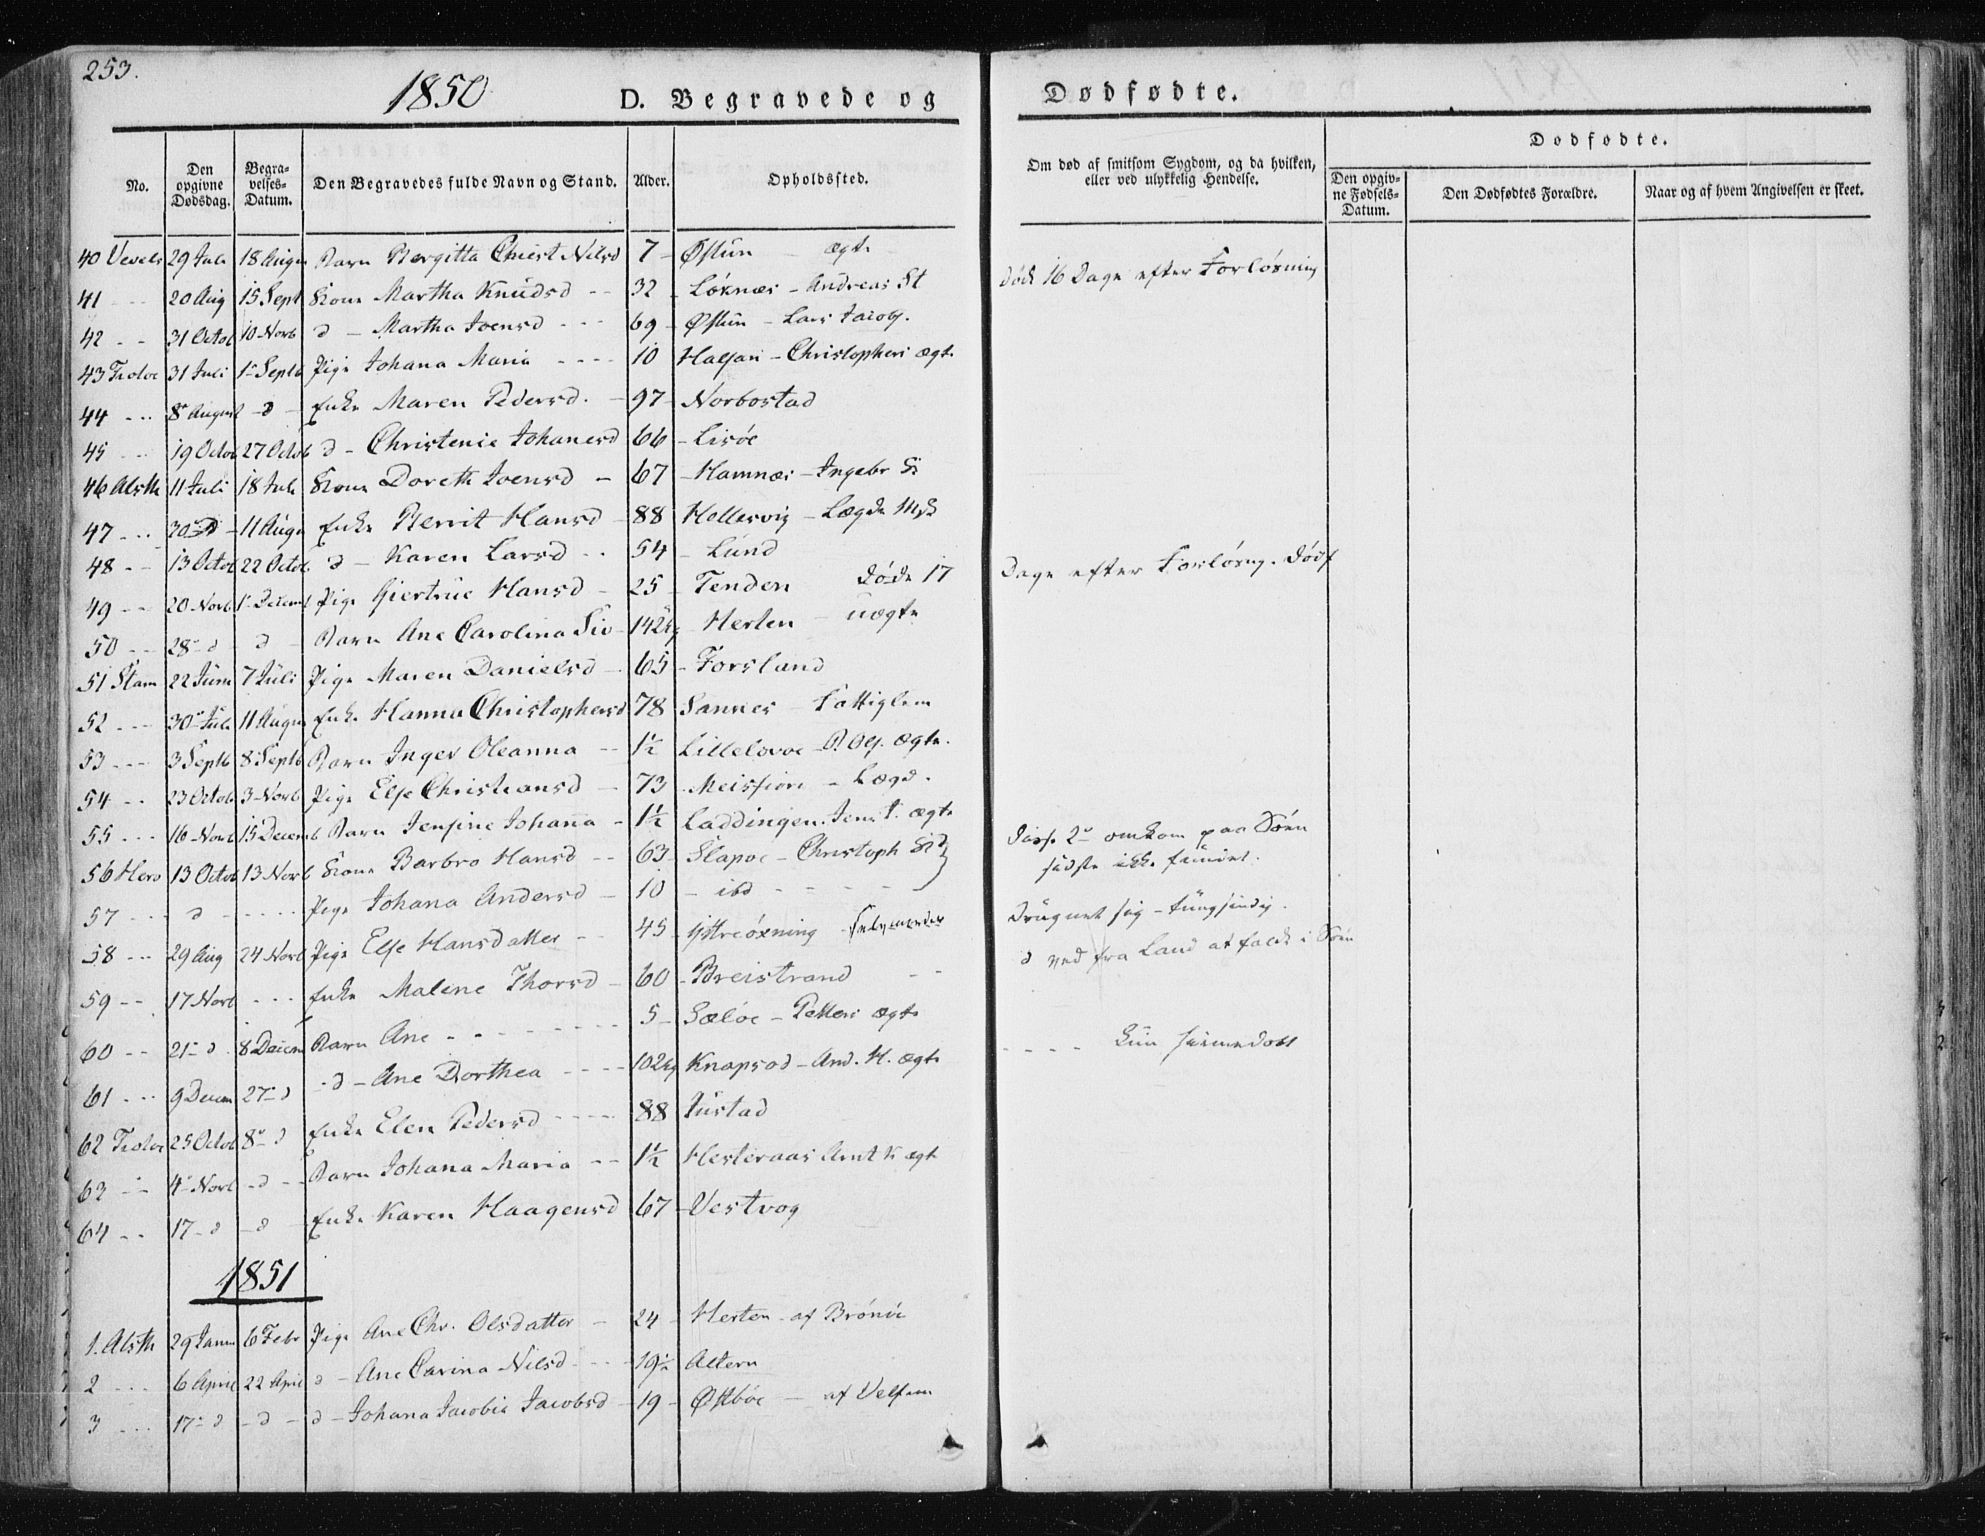 253.
1850 D. Begravede og Dødfødte.
No. Den opgivne Dødsdag. Begravelses-Datum. Den Begravedes fulde Navn og Stand. Alder. Opholdssted. Om død af smitsom Sygdom, og da hvilken, eller ved ulykkelig Hendelse. Dødfødte. Den opgivne Fødsels-Datum. Den Dødfødtes Forældre. Naar og af hvem Angivelsen er skeet.
40 Vevels 29 Juli 18 Augu Barn Bergitta Chrest Nilsd 7 - ægte
41 - - - 20 Aug 15 Sept Kone Martha Knudsd - - 32 - Løknæs - Andreas Død 16 Dage efter Forløsning
42 - - 31 Octob 10 Novb d - Martha Joensd - - - 69 - Lars Jacob.
43 Tiøtøe 31 Juli 1 Septb Pige Johana Maria - - - - 10 - Christophers ægte
44 - - - 8 August - d - Enke Maren Pedersd. - 97 - Norbostad
45 - - 19 Octob 27 Octob d - Christenie Johanesd 66 - Lisøe
46 Alsth 11 Juli 18 Juli Kone Doreth Joensd - 67 - Hamnæs - Ingebr
47 - - - 30 d - 11 Augu Enke Berrit Hansd - 88 - Hellesvig - Lægds
48 - - 13 Octob 22 Octob d - Karen Larsd - - 54 - Lund
49 - - 20 Novb 1 Decemb Pige Giertrue Hansd - 25 - Tenden Døde 17 Dage efter Forløsng. Dødf
50 - - 28 - d d - Barn Ane Carolina - Herten - uægte
51 Stam 22 Juni 7 Juli Pige Maren Danielsd - 65 - Forsland
52 - - - 30 Juli 11 Augu Enke Hanna Christophersd 78 - Sannes - Fattiglem
53 - - - 3 Septb 8 Septb Barn Inger Oleanna - - 1½ - ægte.
54 - - 23 Octob 3 Novb Pige Else Christiansd - 73 - Meisfiord - Lægd.
55 - - - 16 Novb 15 Decemb Barn Jensine Johana - 1½ Laddingen. Jens ægte
56 Herø 13 Octob 13 Novb Kone Barbro Hansd - - 63 - Slapøe - Christoph Disse 2 omkom paa Søen
57 - - - d - - - - - Pige Johana Andersd - 10 - ibd - - - - - sidste ikke fundet.
58 - - - 29 Aug 24 Novb Pige Else Hansdatter - - 45 - Yttreøxning Selvmorder Drugnet sig - tungsindig.
59 - - 17 Novb - - - Enke Malene Thorsd - 60 - Breistrand - - d ved fra Land at falde i Søen
60 - - 21 - d 8 Decem Barn Ane - - - - - - 5 - Sæløe - Petters ægte
61 - - - 9 Decem 27 - d - d - Ane Dorthea - - - - - And. H. ægte - - - - kun hiemedøbt
62 Tiøtøe 25 Octob 8 - d Enke Elen Pedersd - - - - 88 - Tustad
63 - - 4 Novb - d - - Barn Johana Maria - - 1½ - Hesteraas ægte
64 - - 17 - d - d Enke Karen Haagensd 67 - Vestvog
1851
1. Alsth 29 Janu 6 Febr Pige Ane Chr. Olsdatter - 24 - Herten - af Brønøe
2 - - - 6 April 22 April d - Ane Carina Nilsd - - - 19½ Altern
3 - - - 17 - d - d - d - Johana Jacobia Jacobsd - 19 - Østbøe - af